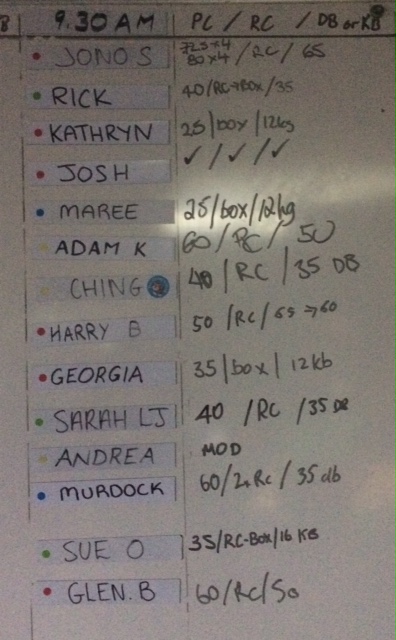 B 9.30 AM PC / RC / DB or KB
JONO S 72.5x4 80x4 / RC / 65
RICK 40/RC→BOX/35
KATHRYN 25/box/12kg
JOSH ✓/✓/✓
MAREE 25/box/12kg
ADAM K 60/RC/50
CHING 40/RC/35 DB
HARRY B 50/RC/65→60
GEORGIA 35/box/12kb
SARAH LJ 40/RC/35 DB
ANDREA MOD
MURDOCK 60/2xRc/35 db
SUE O 35/RC-Box/16 KB
GLEN.B 60/RC/50